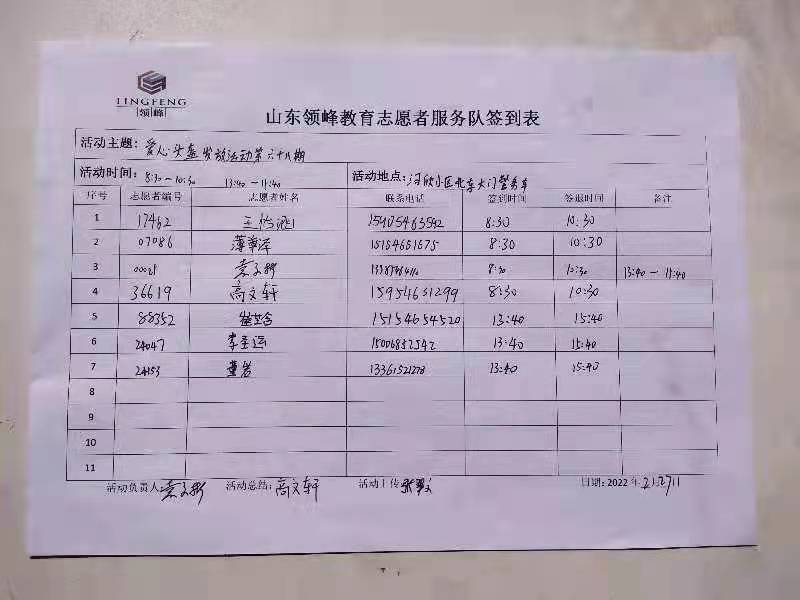 LINGFENG
领峰
山东领峰教育志愿者服务队签到表
活动主题: 爱心头盔发放活动第六十八期
活动时间: 8:30～10:30 13:40－11:40 活动地点: 小区北车大门警务车
序号 志愿者编号 志愿者姓名 联系电话 签到时间 签退时间 备注
1 17462 8:30 10:30
2 07086 15154651675 8:30 10:30
3 00021 袁文彬 8:30 10:30 13:40－11:40
4 36619 高文轩 15954651299 8:30 10:30
5 88352 15154654520 13:40 15:40
6 24047 李圣运 15006852542 13:40 15:40
7 24153 董岩 13361521278 13:40 15:40
8
9
10
11
活动负责人 袁文彬 活动总结: 高文轩 活动上传 日期: 2022年